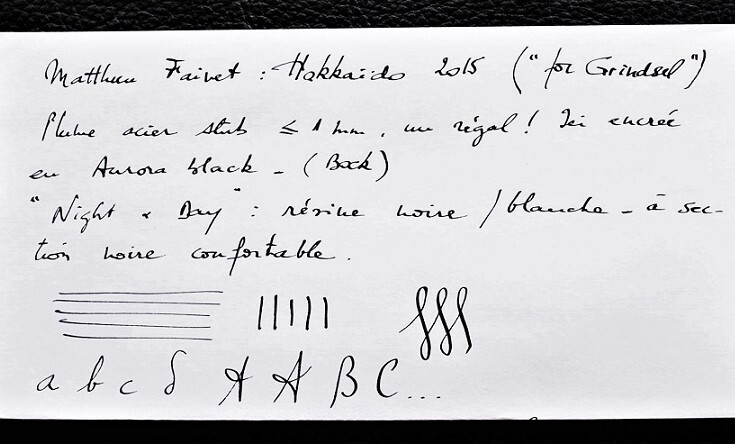 Matthieu Faivet : Hokkaido 2015 ("for Grindsel")
Plume acier stub ≤ 1 mm, un régal ! Ici encrée
en Aurora black - (Bock)
"Night & Day" : résine noire / blanche - à sec-
tion noire confortable.
a b c d A A B C...